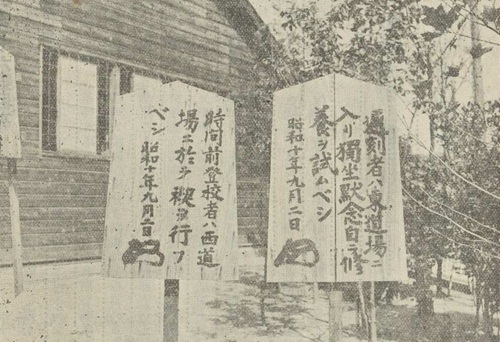 遲刻者ハ東道場ニ
入リ獨坐默念自ラ修
養ヲ試ムベシ
昭和十年九月二日
時間前登校者ハ西道
場ニ於テ禊ヲ行フ
ベシ 昭和十年九月二日